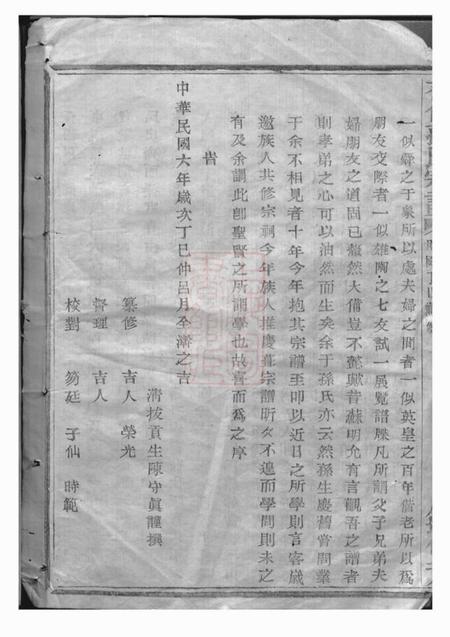 一似舜之于象所以處夫婦之間者一似英皇之百年偕老所以為
朋友交際者一似雄陶之七友試一展覽譜牒凡所謂父子兄弟夫
婦朋友之道固已鳌然大備豈不懿歟昔蘇明允有言觀吾之譜者
則孝弟之心可以油然而生矣余于孫氏亦云然孫生慶舊嘗問業
于余不相見者十年今年抱其宗譜至叩以近日之所學則言客歲
邀族人共修宗祠今年族人推慶董宗譜昕夕不遑而學問則未之
有及余謂此卽聖賢之所謂學也故喜而為之序
旹
中華民國六年歲次丁巳仲呂月全浣之吉
清拔貢生陳守眞謹撰
纂修 吉人 榮光
督理 吉人
校對 芴廷 子仙 時範